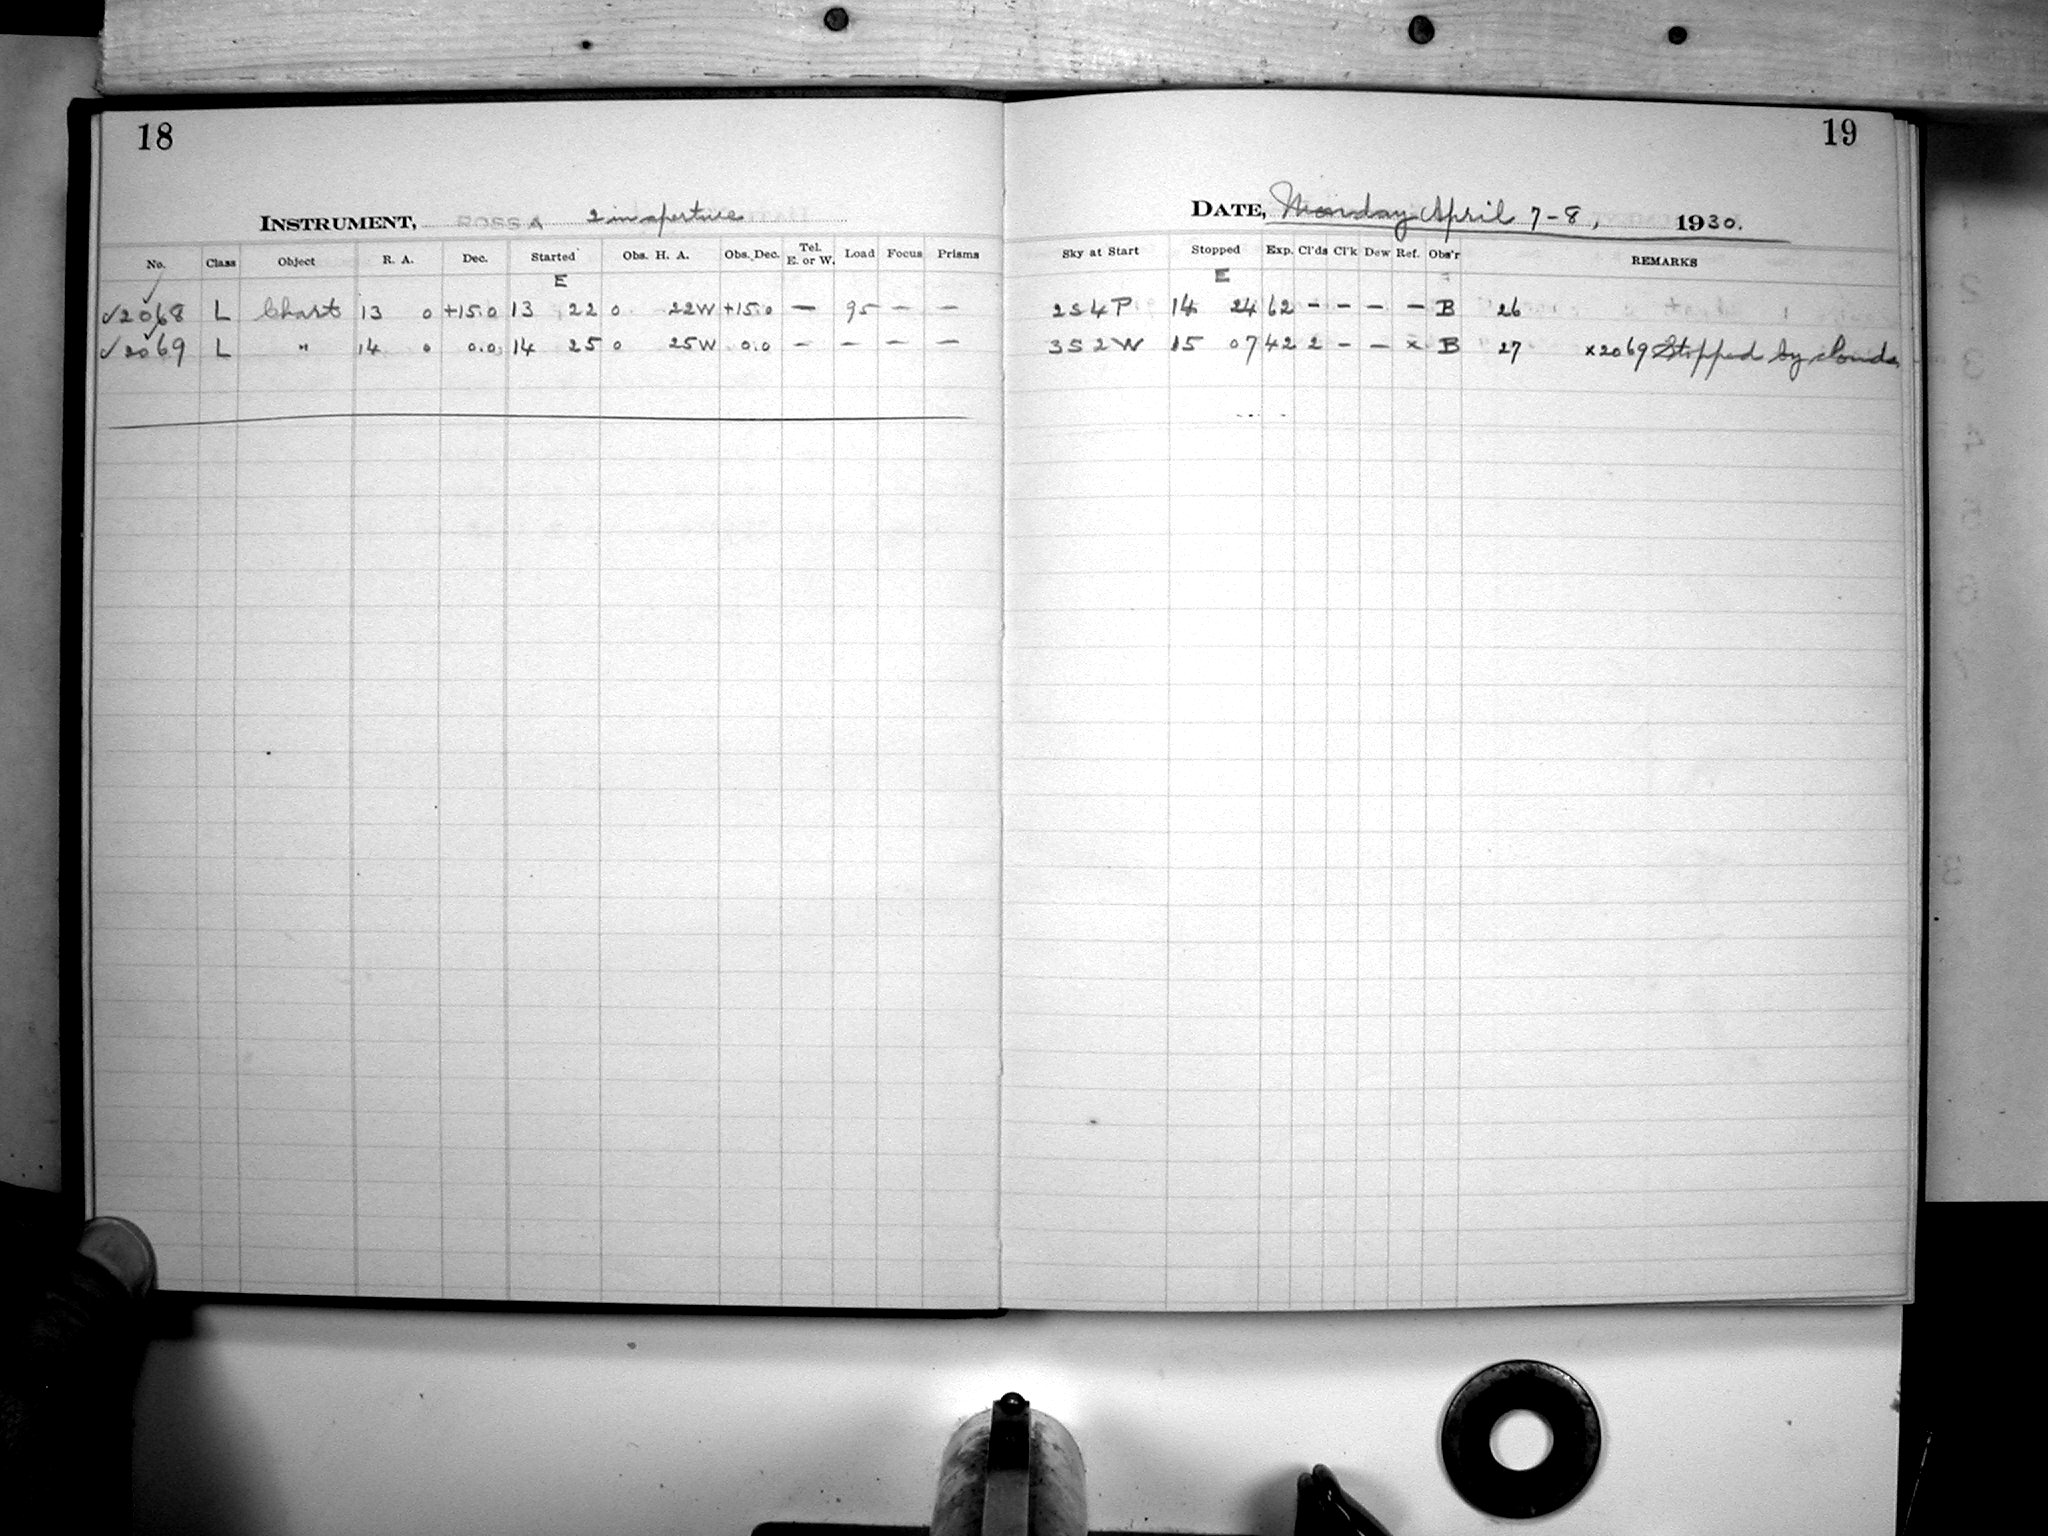 18
INSTRUMENT, ROSS A 2 in aperture
No. Class Object R. A. Dec. Started Obs. H. A. Obs. Dec. Tel. E. or W. Load Focus Prisms
E
✓2068 L Chart 13 0 +15.0 13 22 0 22W +15.0 — 95 — —
✓2069 L " 14 0 0.0 14 25 0 25W 0.0 — — — —
19
DATE, Monday April 7-8, 1930.
Sky at Start Stopped Exp. Cl'ds Cl'k Dew Ref. Obs'r REMARKS
E
2S4P 14 24 62 — — — — B 26
3S2W 15 07 42 2 — — x B 27 x2069 Stopped by clouds